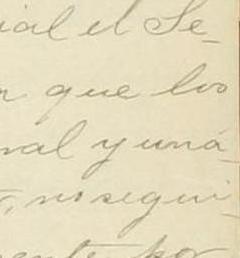 ial el Se-
que los
nal y uná-
, no segui-
mente por